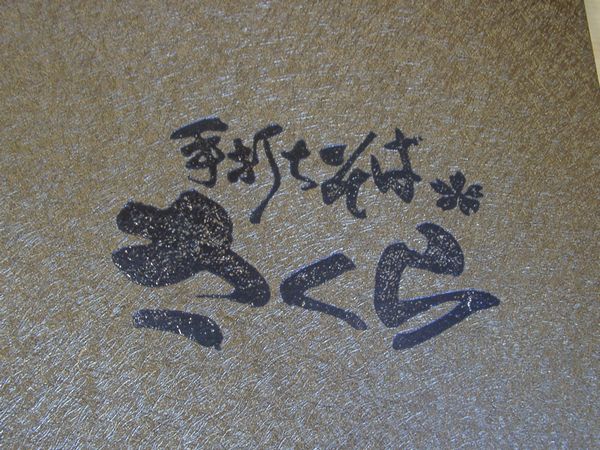 手打ちそば
さくら